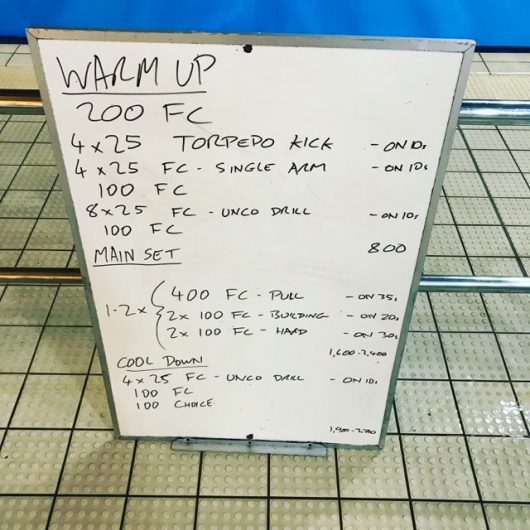 WARM UP
200 FC
4 x 25 TORPEDO KICK - ON 10s
4 x 25 FC - SINGLE ARM - ON 10s
100 FC
8 x 25 FC - UNCO DRILL - ON 10s
100 FC
800
MAIN SET
400 FC - PULL - ON 35s
1-2 x { 2 x 100 FC - BUILDING - ON 20s
2 x 100 FC - HARD - ON 30s
1,600-2,400
COOL DOWN
4 x 25 FC - UNCO DRILL - ON 10s
100 FC
100 CHOICE
1,900-2,700